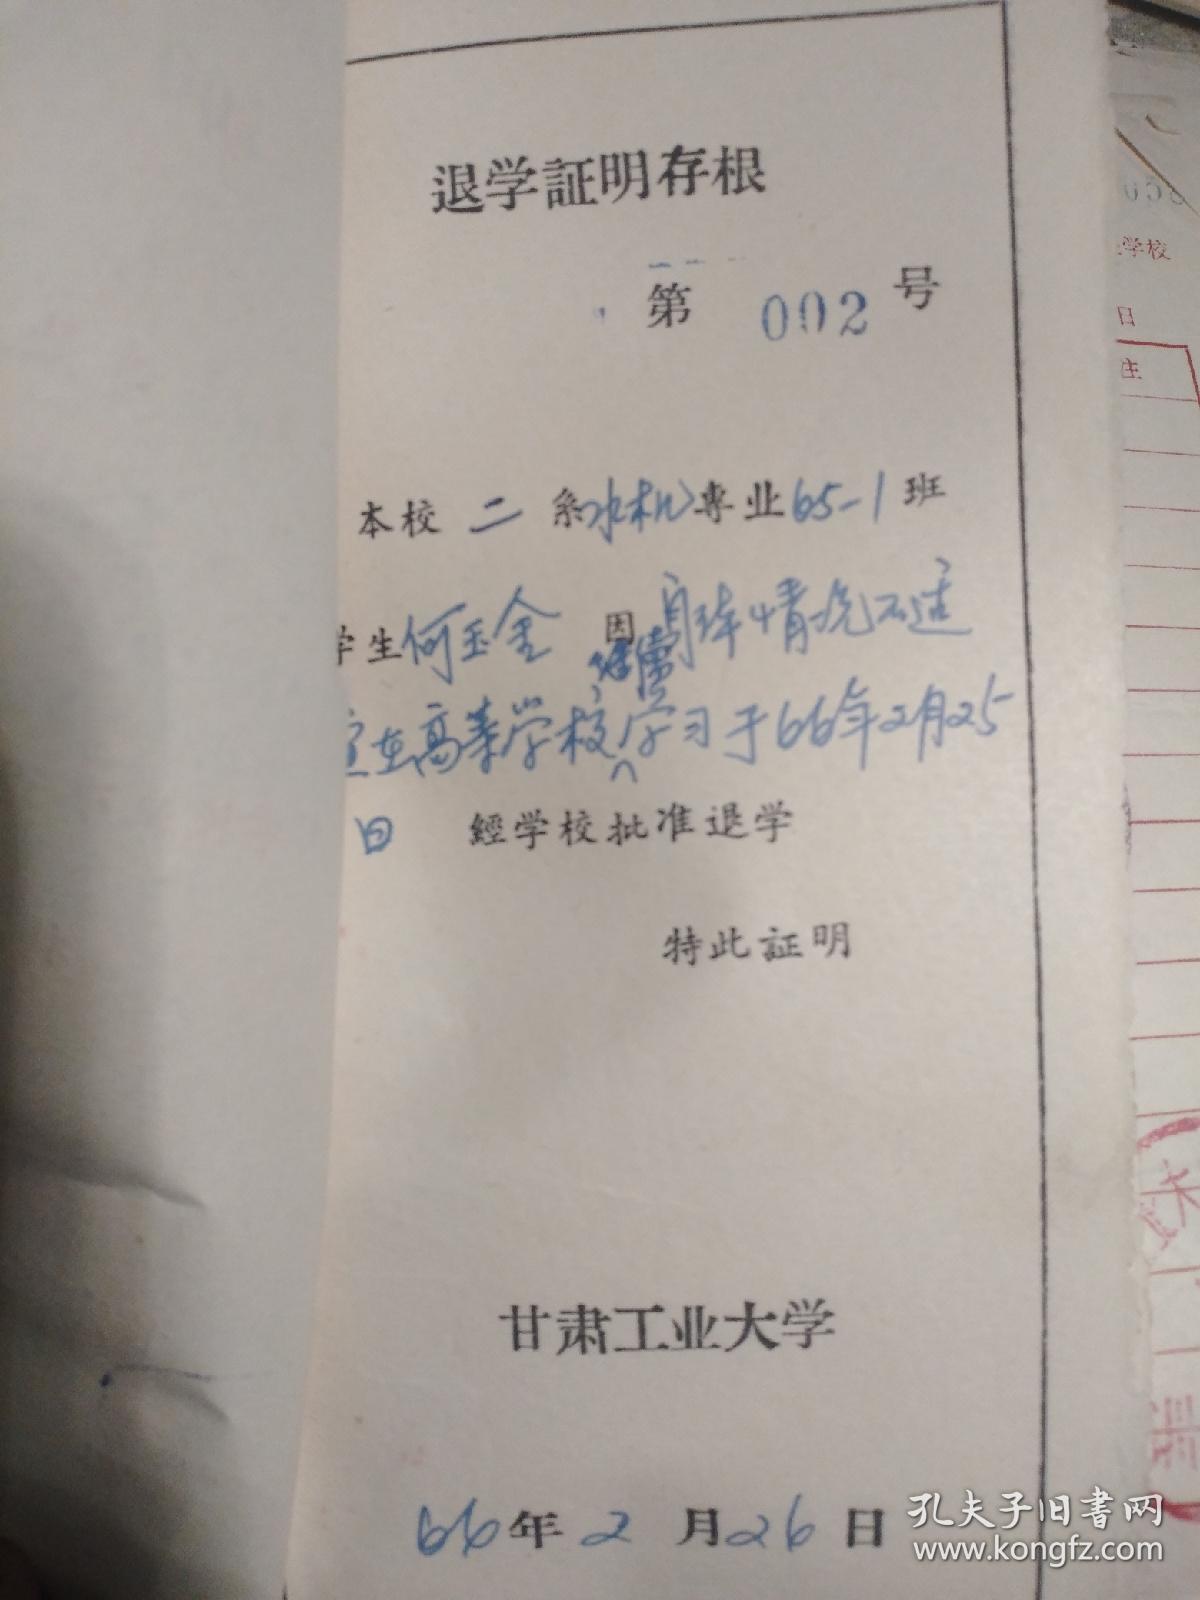 退学証明存根
第 002 号
本校 二 系水机専业65-1班
学生何玉金 因身体情况不适
宜在高等学校继续学习于66年2月25
日 經学校批准退学
特此証明
甘肃工业大学
66年2月26日
学校
日
注
孔夫子旧书网
www.kongfz.com